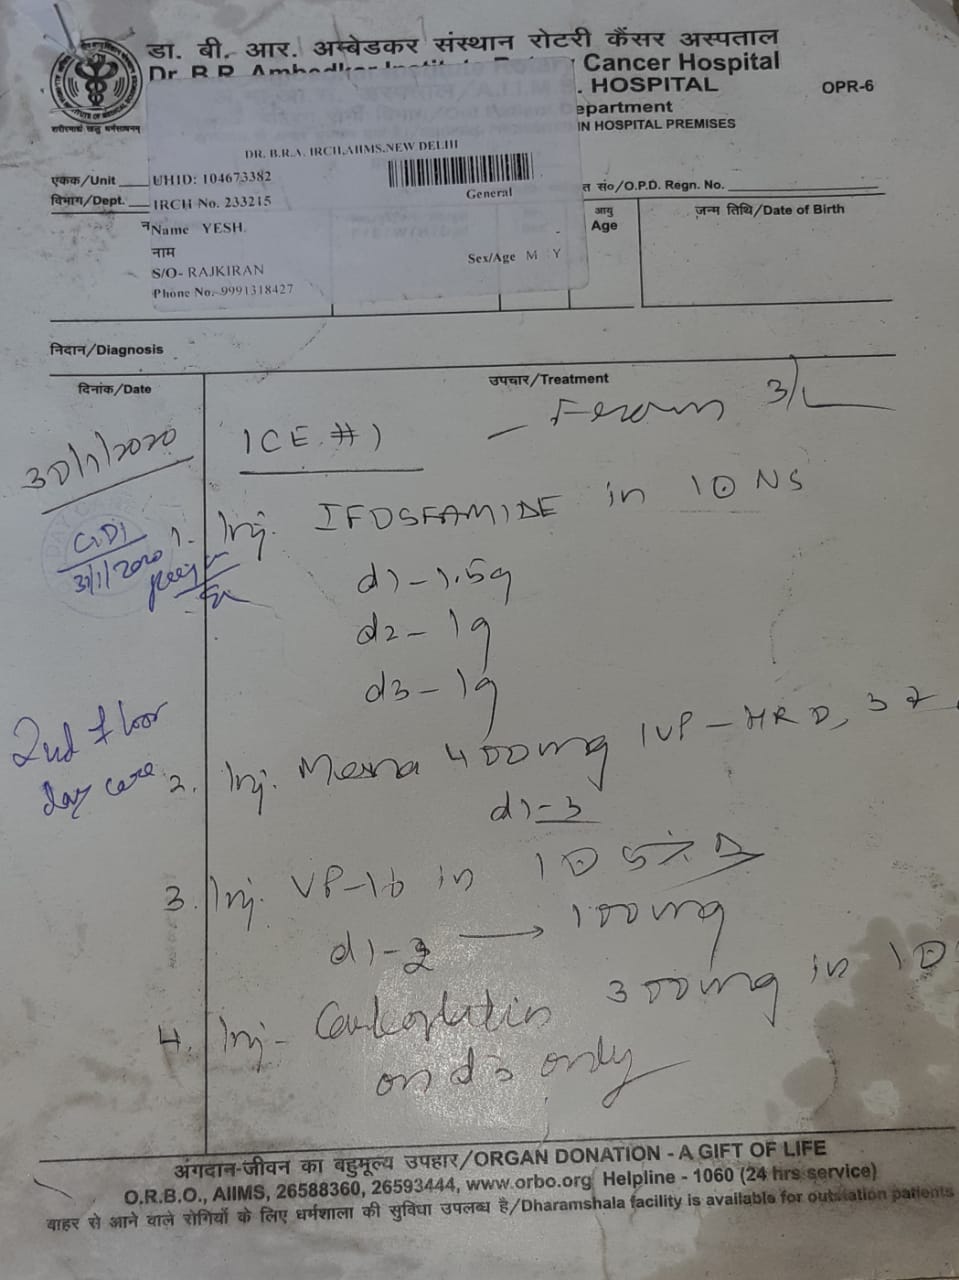 डा. बी. आर. अम्बेडकर संस्थान रोटरी कैंसर अस्पताल
Dr. B.R. Ambedkar Institute Rotary Cancer Hospital
. HOSPITAL
OPR-6
epartment
IN HOSPITAL PREMISES
शरीरमाद्यं खलु धर्मसाधनम्
DR. B.R.A. IRCH,AIIMS,NEW DELHI
एकक/Unit
UHID: 104673382
General
त सं०/O.P.D. Regn. No.
विभाग/Dept.
IRCH No. 233215
न
Name YESH
नाम
S/O- RAJKIRAN
Sex/Age M Y
Phone No.-9991318427
आयु
Age
जन्म तिथि/Date of Birth
निदान/Diagnosis
दिनांक/Date
उपचार/Treatment
3/L
30/1/2020
ICE #1
1. Inj. IFOSFAMIDE in 10 NS
31/1/2020
d1-1.5g
d2-1g
d3-1g
2nd floor
day care
2. Inj. Mesna 400mg IVP-HR 0, 3 7
d1-3
3. Inj. VP-16 in 10 5% D
d1-3 → 100mg
4. Inj- Carboplatin 300mg in 10
on d3 only
अंगदान-जीवन का बहुमूल्य उपहार/ORGAN DONATION - A GIFT OF LIFE
O.R.B.O., AIIMS, 26588360, 26593444, www.orbo.org Helpline - 1060 (24 hrs service)
बाहर से आने वाले रोगियों के लिए धर्मशाला की सुविधा उपलब्ध है/Dharamshala facility is available for outstation patients